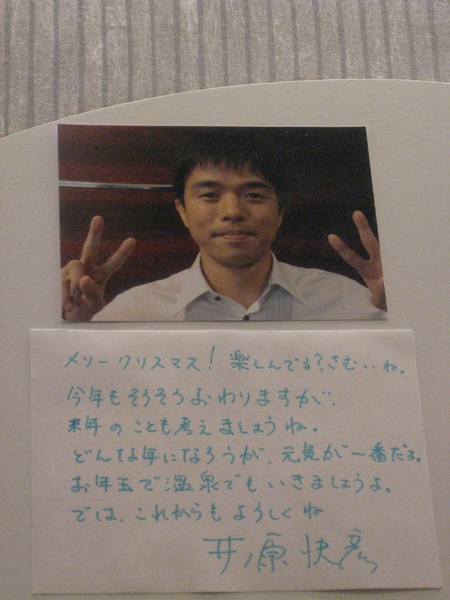 メリークリスマス! 楽しんでる?さむいね。
今年もそろそろおわりますが、
来年のことも考えましょうね。
どんな年になろうが、元気が一番だよ。
お年玉で温泉でもいきましょうよ。
では、これからもよろしくね
井ノ原快彦